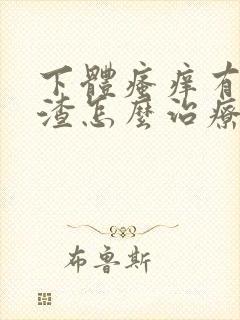 下體瘙痒有
渣怎麼治療
布魯斯